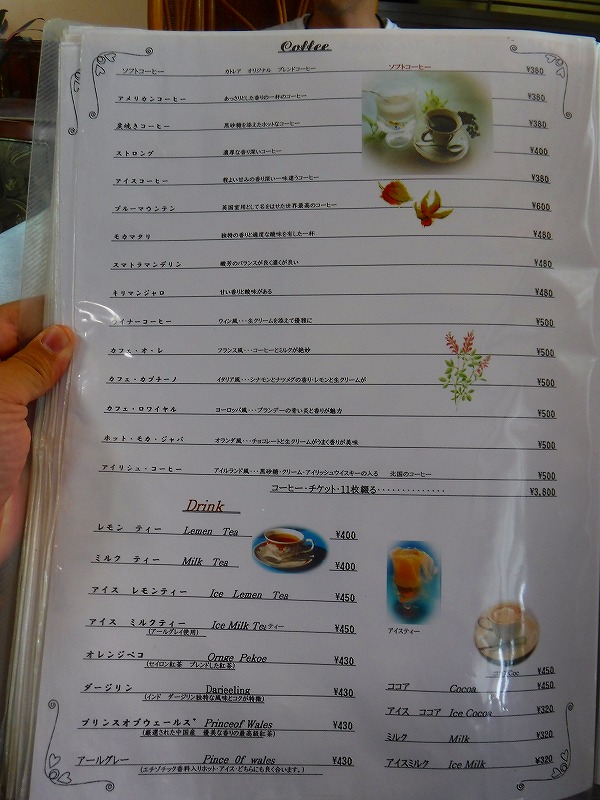 Coffee
ソフトコーヒー カトレア オリジナル ブレンドコーヒー ソフトコーヒー ¥380
アメリカンコーヒー あっさりとした香りの一杯のコーヒー ¥380
炭焼きコーヒー 黒砂糖を添えたホットなコーヒー ¥380
ストロング 濃厚な香り深いコーヒー ¥400
アイスコーヒー 程よい甘みの香り深い一味違うコーヒー ¥380
ブルーマウンテン 英国室用として名をはせた世界最高のコーヒー ¥600
モカマタリ 独特の香りと適度な酸味を有した一杯 ¥480
スマトラマンデリン 酸苦のバランスが良く濃くが良い ¥480
キリマンジャロ 甘い香りと酸味がある ¥480
ウイナーコーヒー ウィン風・・・生クリームを添えて優雅に ¥500
カフェ・オ・レ フランス風・・・コーヒーとミルクが絶妙 ¥500
カフェ・カプチーノ イタリア風・・・シナモンとナツメグの香り・レモンと生クリームが ¥500
カフェ・ロワイヤル ヨーロッパ風・・・ブランデーの青い炎と香りが魅力 ¥500
ホット・モカ・ジャバ オランダ風・・・チョコレートと生クリームがうまく香りが美味 ¥500
アイリシュ・コーヒー アイルランド風・・・黒砂糖・クリーム・アイリッシュウイスキーの入る 北国のコーヒー ¥500
コーヒー・チケット・11枚綴る・・・・・・・・・・・・・・ ¥3,800
Drink
レモン ティー Lemen Tea ¥400
ミルク ティー Milk Tea ¥400
アイス レモンティー Ice Lemen Tea ¥450
アイス ミルクティー Ice Milk Tea ティー ¥450
(アールグレイ使用)
アイスティー
オレンジペコ Ornge Pekoe ¥430
(セイロン紅茶 ブレンドした紅茶)
ダージリン Darjeeling ¥430
(インド ダージリン独特な風味とコクが特徴)
プリンスオブウェールズ Princeof Wales ¥430
(厳選された中国産 優美な香りの最高級紅茶)
アールグレー Pince Of wales ¥430
(エチゾチック香料入りホット・アイス・どちらにも良く合います。)
¥450
ココア Cocoa ¥450
アイス ココア Ice Cocoa ¥320
ミルク Milk ¥320
アイスミルク Ice Milk ¥320